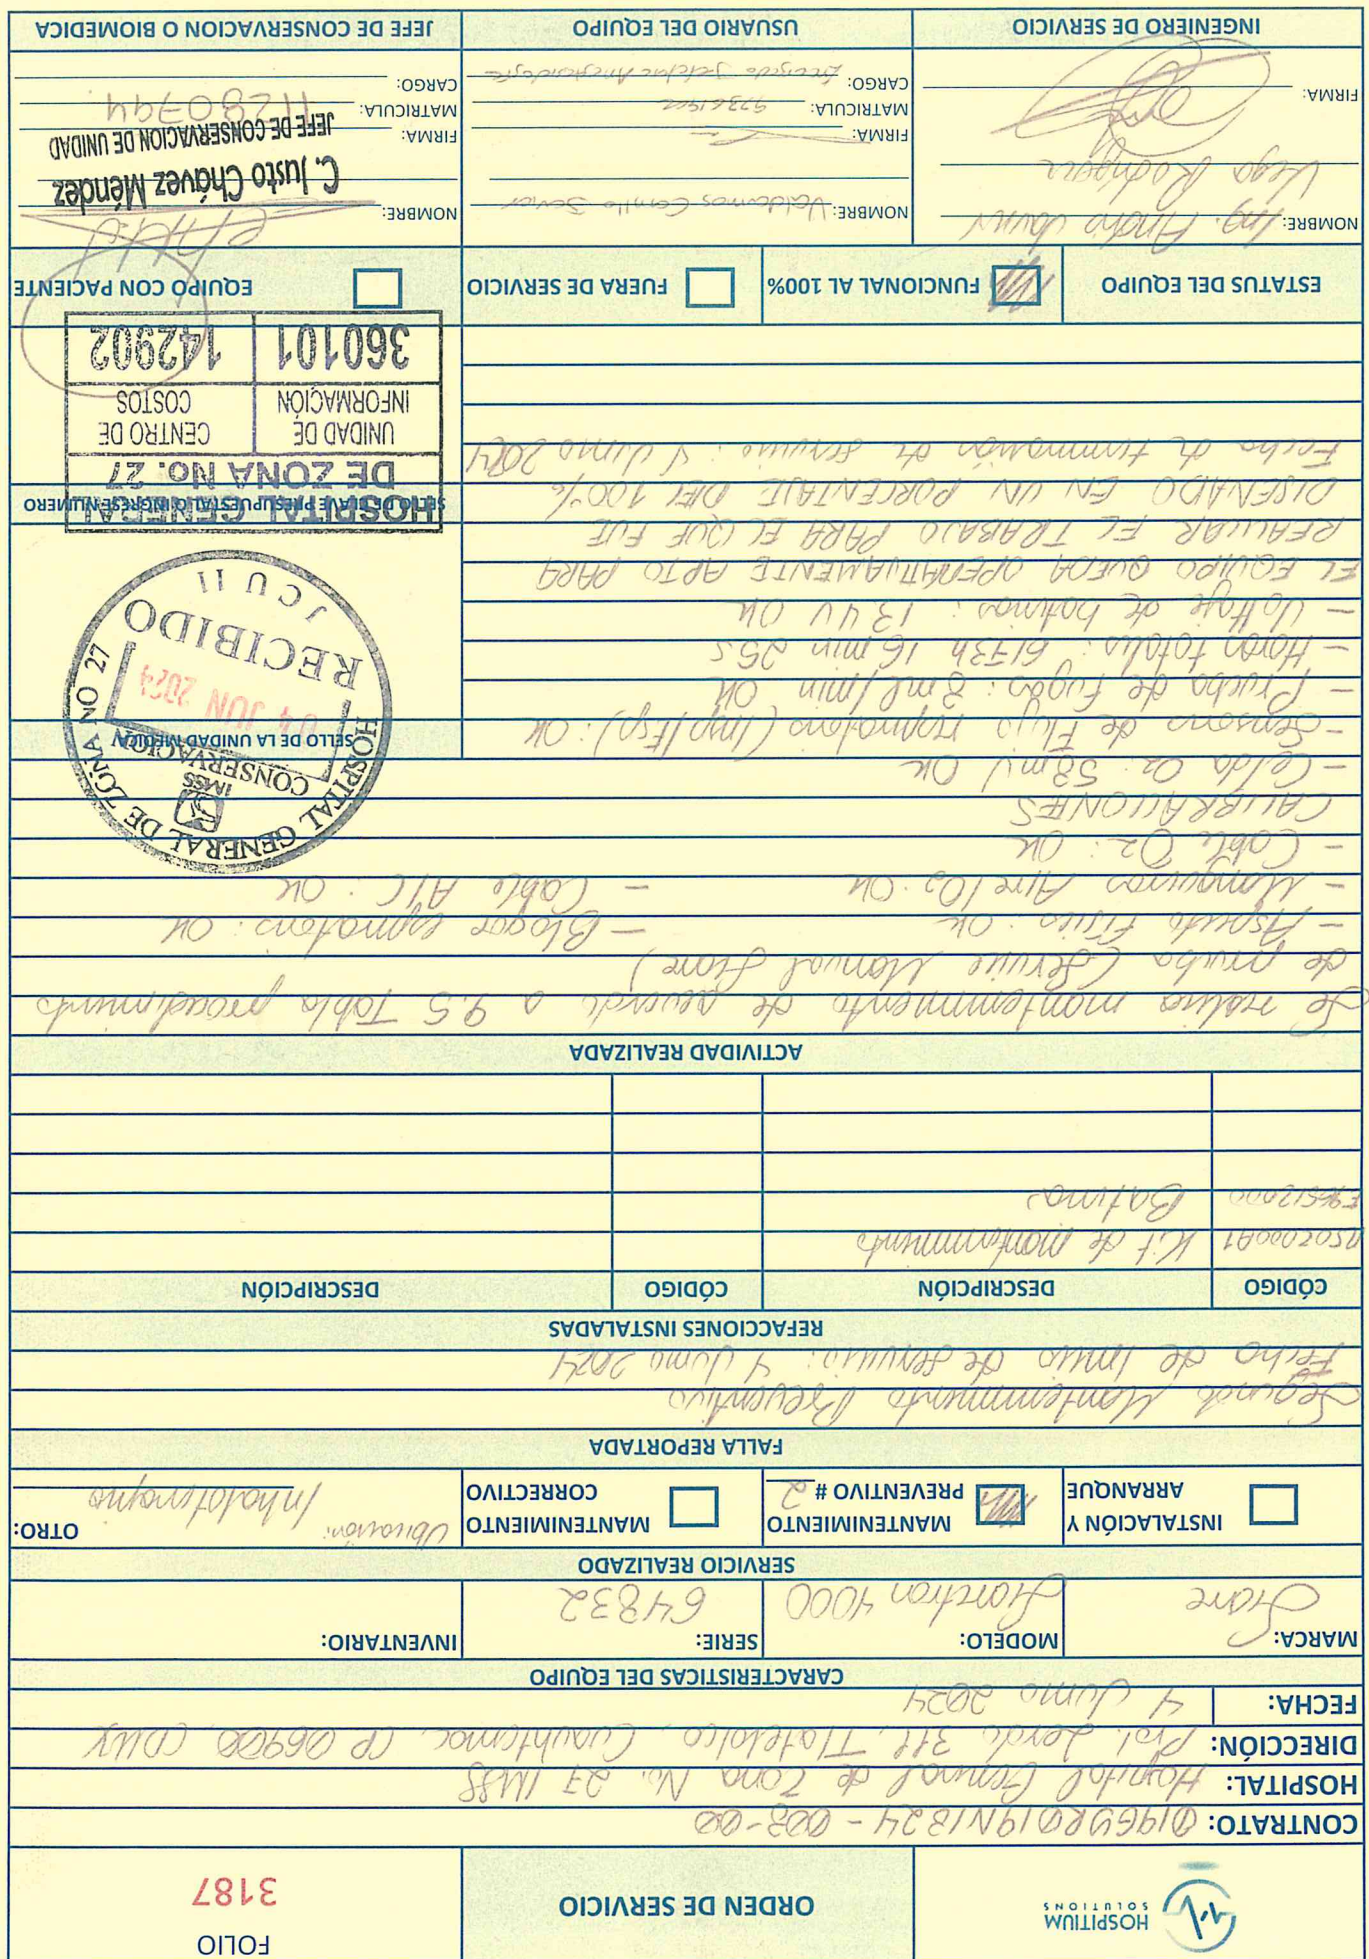 HOSPITIUM
SOLUTIONS
ORDEN DE SERVICIO
FOLIO
3187
CONTRATO:
HOSPITAL: Hospital General de Zona No. 27 IMSS
DIRECCIÓN: Prol. Lerdo 311, Tlatelolco, Cuauhtemoc, CP 06900, CDMX
FECHA: 4 Junio 2024
CARACTERISTICAS DEL EQUIPO
MARCA: Siare
MODELO: Siaretron 4000
SERIE: 64832
INVENTARIO:
SERVICIO REALIZADO
INSTALACIÓN Y ARRANQUE
MANTENIMIENTO PREVENTIVO # 2
MANTENIMIENTO CORRECTIVO
OTRO: Ubicación: Inhaloterapia
FALLA REPORTADA
Segundo Mantenimiento Preventivo
Fecha de Inicio de servicio: 4 Junio 2024
REFACCIONES INSTALADAS
CÓDIGO DESCRIPCIÓN CÓDIGO DESCRIPCIÓN
Kit de mantenimiento
Bateria
ACTIVIDAD REALIZADA
Se realiza mantenimiento de acuerdo a 9.5 Tabla procedimiento
de prueba (Service Manual Siare)
- Aspecto Físico: OK - Bloque espiratorio: OK
- Mangueras Aire/O2: OK - Cable A/C: OK
- Cable O2: OK
CALIBRACIONES
- Celda O2: 58mV OK
- Sensores de Flujo (Insp/Esp): OK
- Prueba de Fugas: 3 ml/min OK
- Horas totales: 6173h 16 min 25s
- Voltaje de baterias: 13.4V OK
EL EQUIPO QUEDA OPERATIVAMENTE APTO PARA
REALIZAR EL TRABAJO PARA EL QUE FUE
DISEÑADO EN UN PORCENTAJE DEL 100%
Fecha de terminación de servicio: 4 Junio 2024
SELLO DE LA UNIDAD MEDICA
HOSPITAL GENERAL DE ZONA NO 27
IMSS
CONSERVACION
04 JUN 2024
RECIBIDO
J C U II
SELLO DE CLAVE PRESUPUESTAL O INGRESE NUMERO
HOSPITAL GENERAL
DE ZONA No. 27
UNIDAD DE INFORMACIÓN
CENTRO DE COSTOS
360101
142902
ESTATUS DEL EQUIPO
FUNCIONAL AL 100%
FUERA DE SERVICIO
EQUIPO CON PACIENTE
NOMBRE: Ing. Andrés Javier
Vega Rodríguez
FIRMA:
INGENIERO DE SERVICIO
NOMBRE: Valdemos Carrillo Javier
FIRMA:
MATRICULA:
CARGO:
USUARIO DEL EQUIPO
NOMBRE:
C. Justo Chávez Méndez
FIRMA:
JEFE DE CONSERVACION DE UNIDAD
MATRICULA: 11280794
CARGO:
JEFE DE CONSERVACION O BIOMEDICA